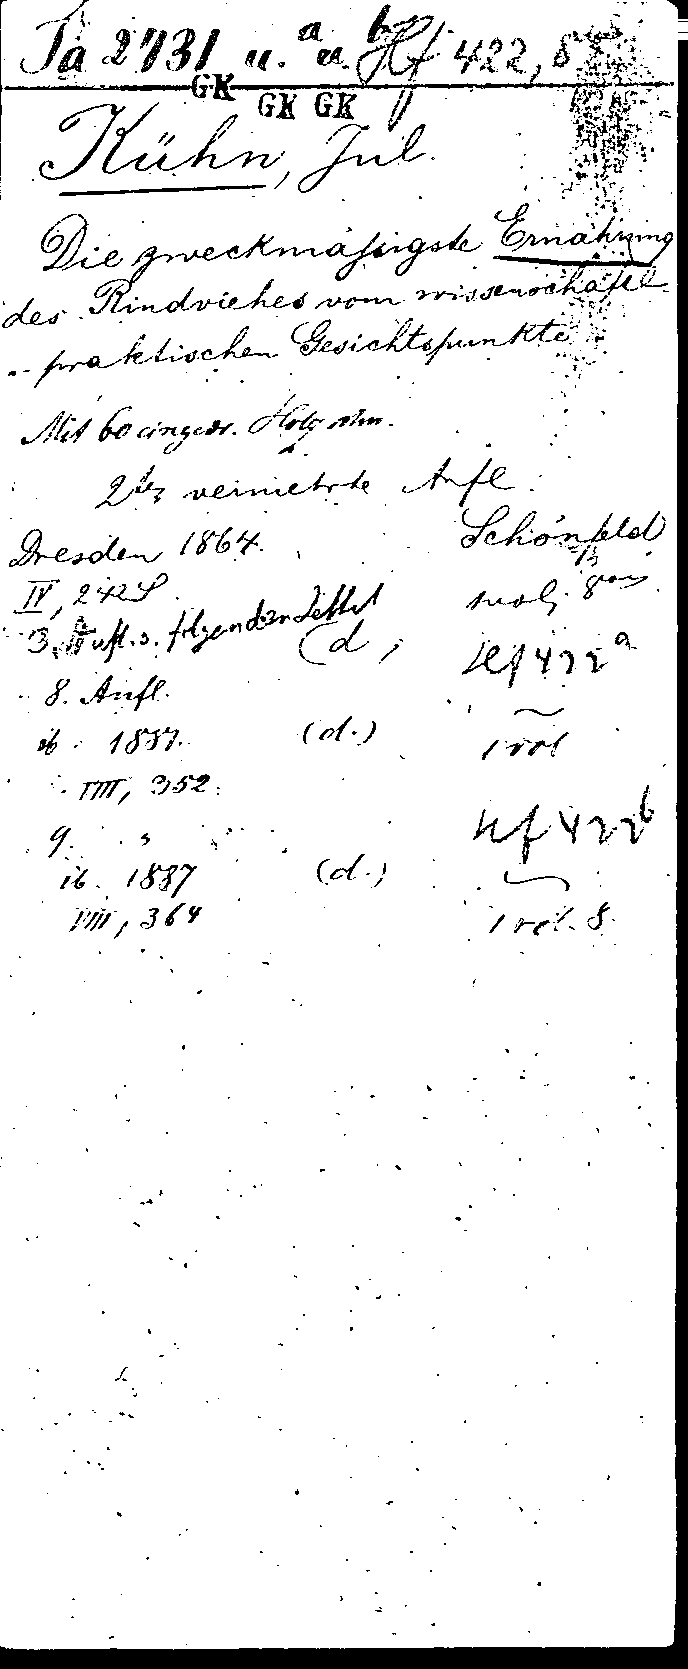 Ta 2731 u. a u. b Hf 422, 8°
GK GK GK
Kühn, Jul.
Die zweckmässigste Ernährung
des Rindviehes vom wissenschaftl.
- praktischen Gesichtspunkte
Mit 60 eingedr. Holzschn.
2te vermehrte Aufl.
Dresden 1864. Schönfeld
IV, 242 S. 8°
3. Aufl. s. folgenden Zettel
(d. Hf 422a
8. Aufl.
ib. 1887. (d.) 1 vol
VIII, 352.
9. " Hf 422b
ib. 1887 (d.)
VIII, 364 1 vol. 8